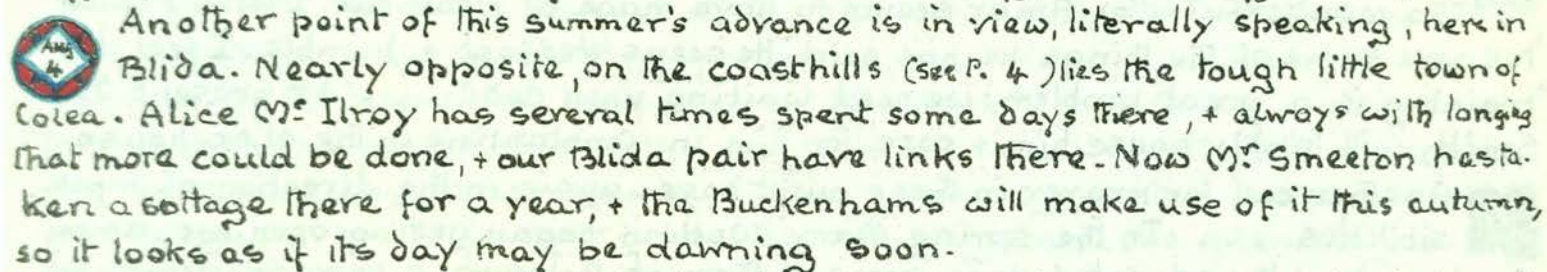 Another point of this summer's advance is in view, literally speaking, here in
Aug 4
Blida. Nearly opposite, on the coasthills (see P. 4) lies the tough little town of
Colea. Alice Mc Ilroy has several times spent some days there, + always with longing
that more could be done, + our Blida pair have links there. Now Mr Smeeton has ta-
ken a sottage there for a year, + the Buckenhams will make use of it this autumn,
so it looks as if its day may be dawning soon.